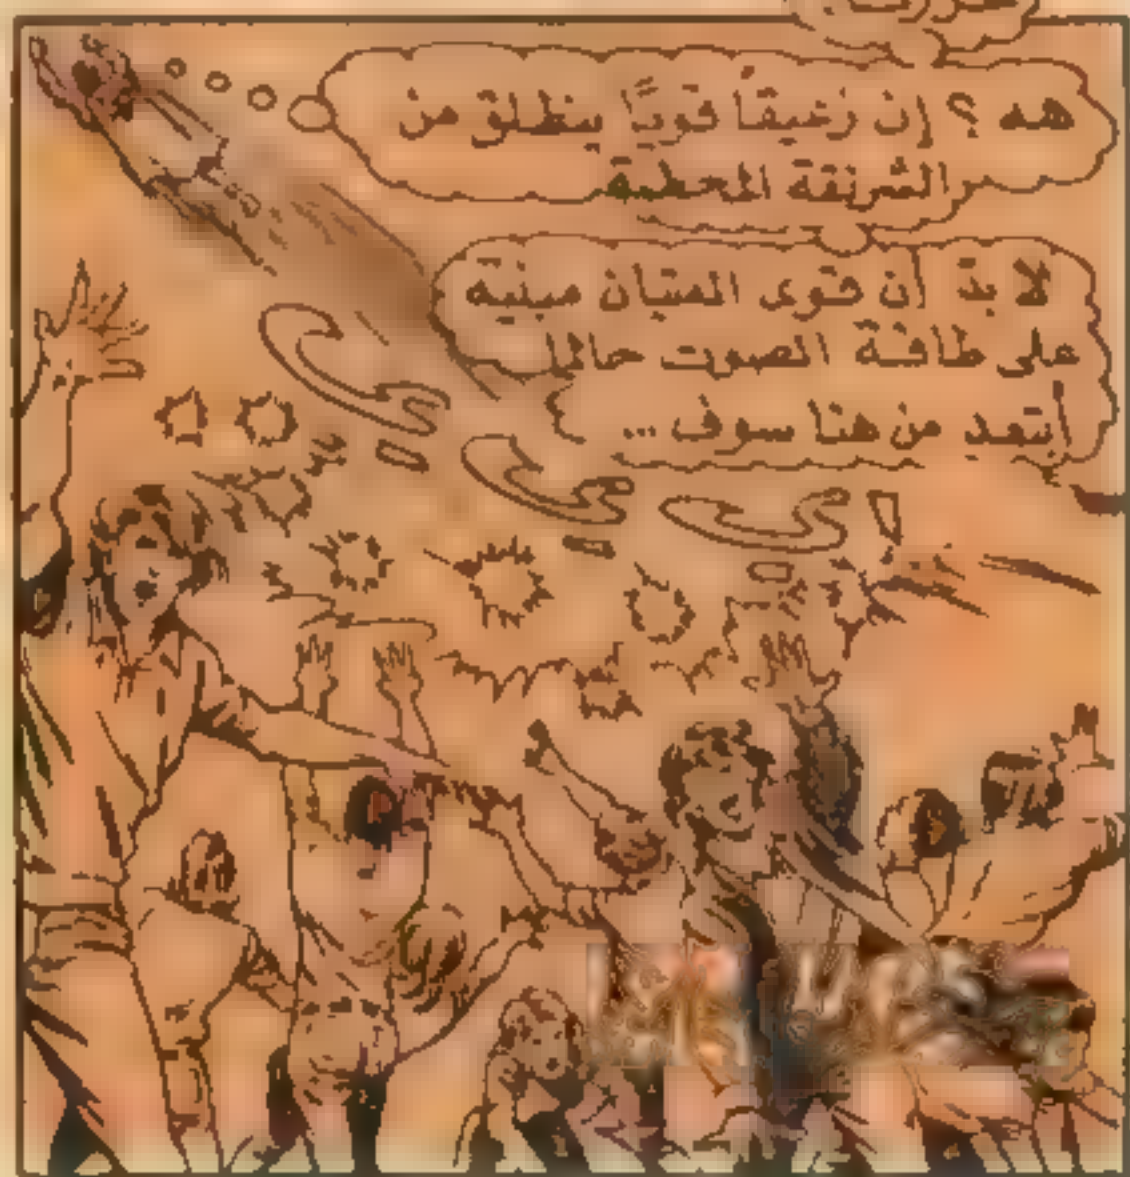 هه ؟ إن زعيقاً قويًا ينطلق من
الشرنقة المحطمة
لا بدّ أن قوى الفتيان مبنية
على طاقة الصوت حالما
أبتعد من هنا سوف ...